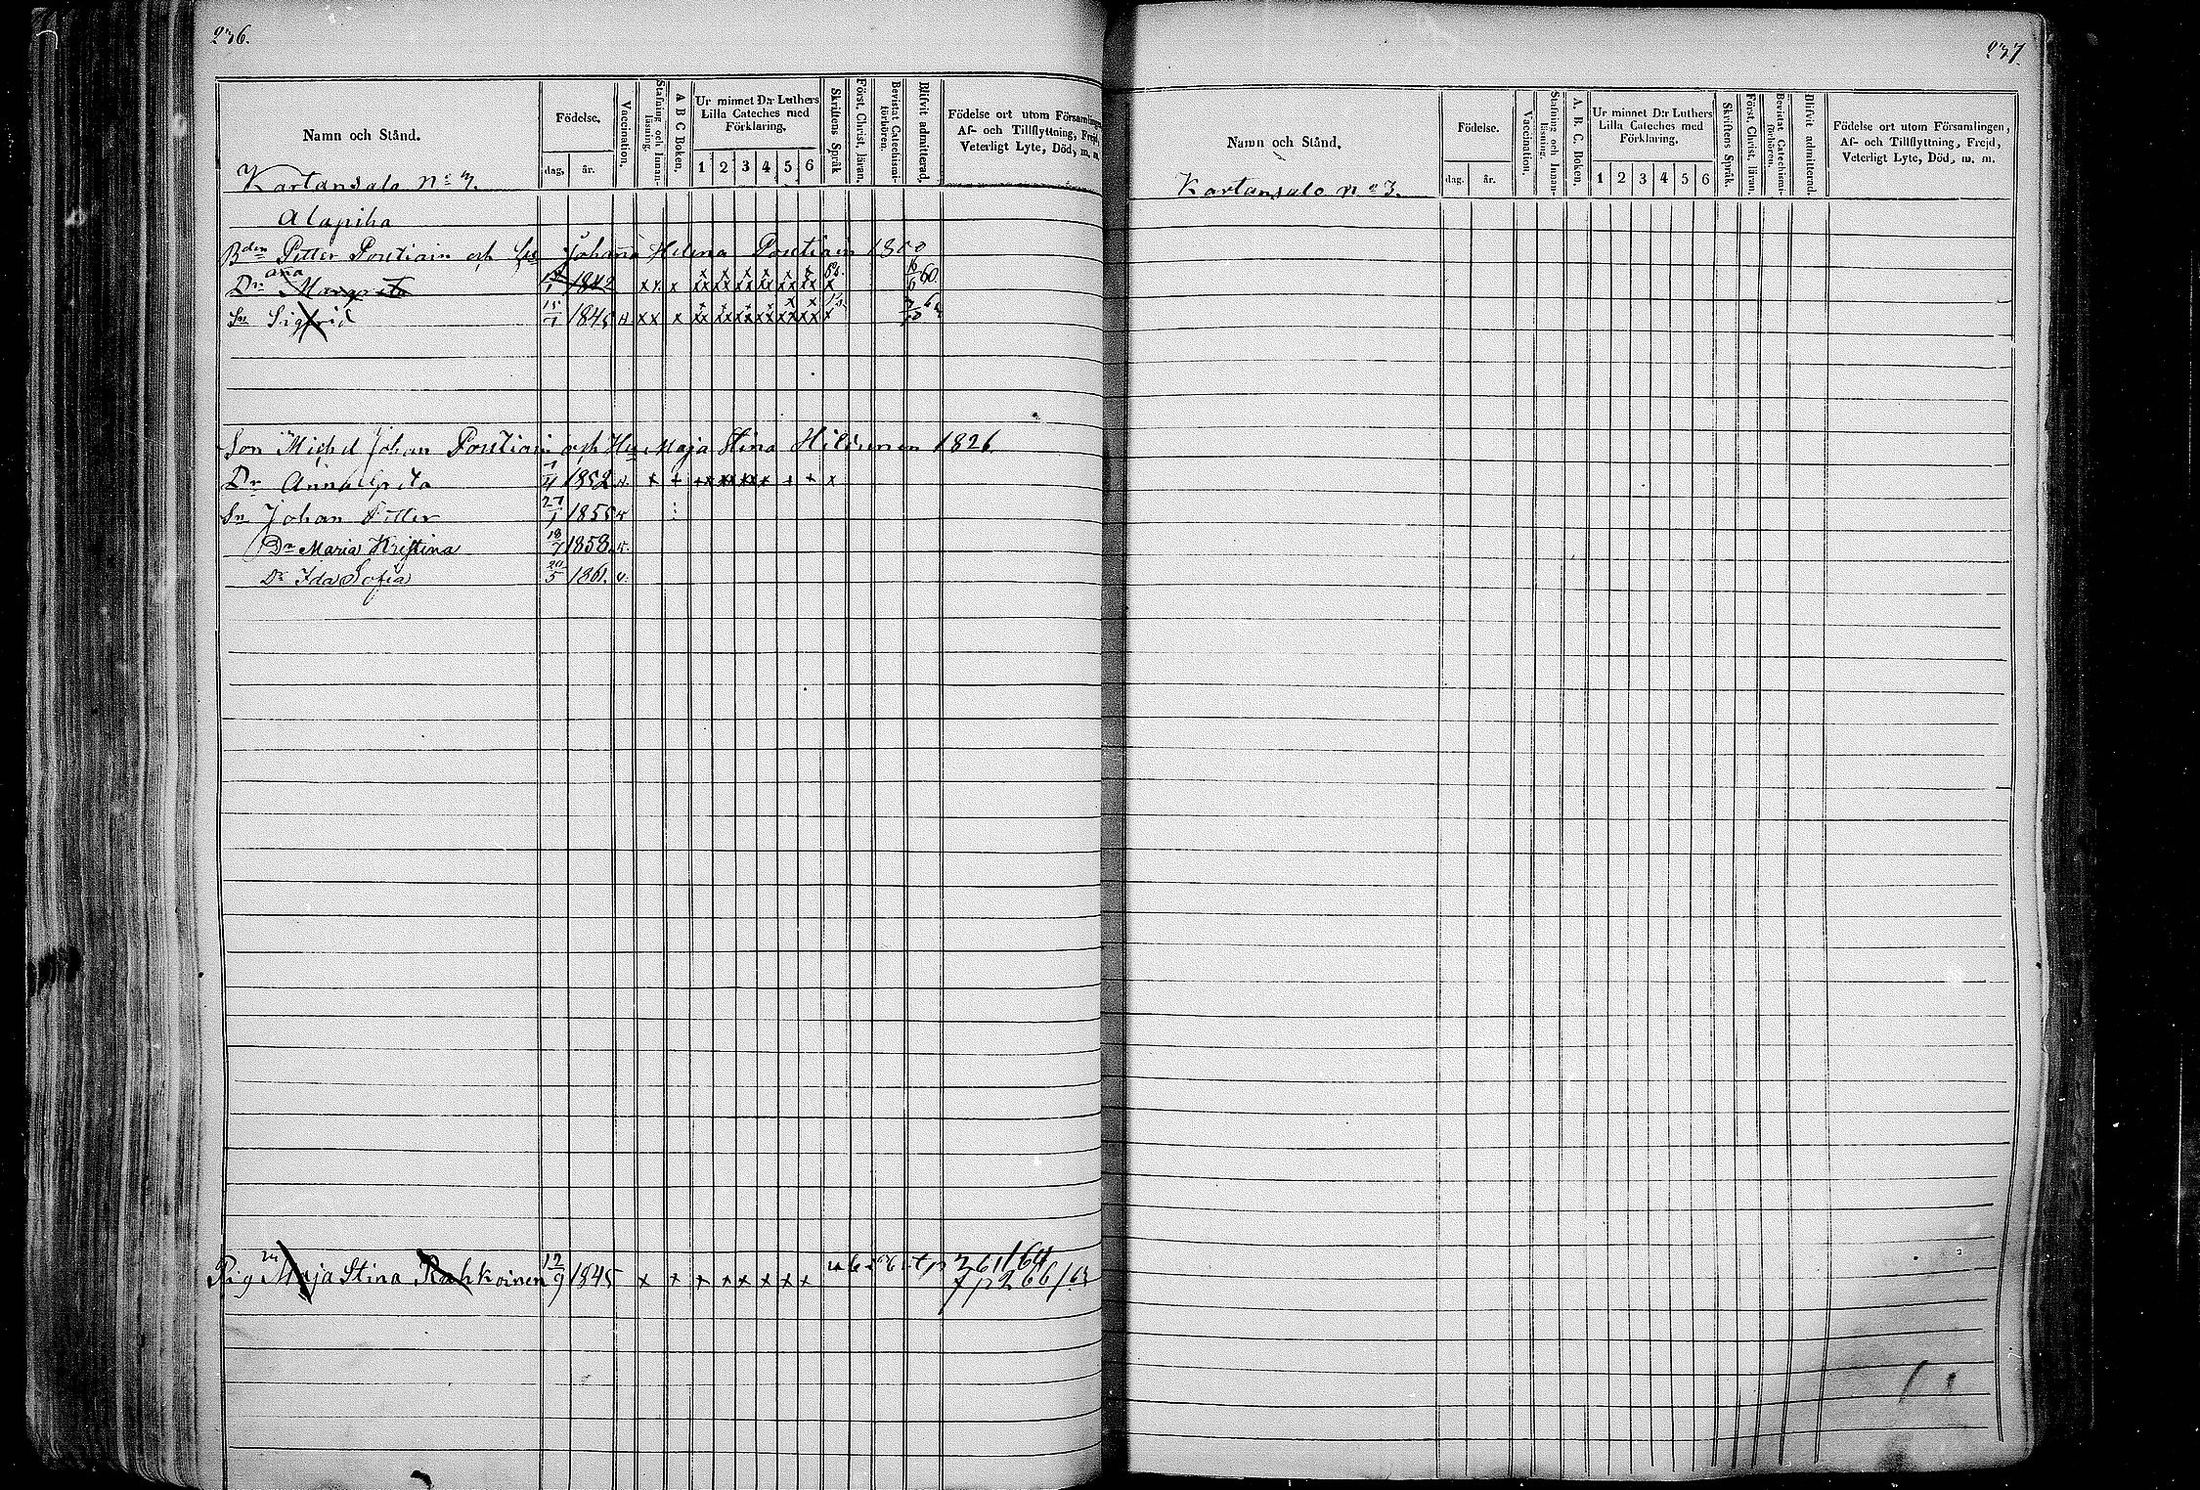 236.
Namn och Stånd.
Födelse,
dag, år.
Vaccination,
Stafning och Innan-läsning.
A B C Boken,
Ur minnet D:r Luthers Lilla Cateches med Förklaring,
1 2 3 4 5 6
Skriftens Språk
Först. Christ. läran.
Bevistat Catechismi-förhören.
Blifvit admitterad,
Födelse ort utom Församlingen,
Af- och Tillflyttning, Frejd,
Veterligt Lyte, Död, m. m.
Kartansalo No 3.
Alapiha
Bden Petter Postiain och Hus Johana Helena Postiain 1800
Dr ana Margreta 1842 x x x 60
Sn Sigfrid 15 1845 x x x
Son Michel Johan Postiain och Hu Maja Stina Hildunen 1826
Dr Anna Greta 1852
Sn Johan Petter 27/1 1855
Dr Maria Kristina 18/7 1858
Dr Ida Sofia 20/5 1861. v.
261/64
Pig Maja Stina Rahkoinen 12/9 1845 x x x x x x x x p 266/63
237.
Namn och Stånd,
Födelse.
dag. år.
Vaccination,
Stafning och Innan-läsning.
A. B. C. Boken.
Ur minnet D:r Luthers Lilla Cateches med Förklaring,
1 2 3 4 5 6
Skriftens Språk.
Först. Christ. läran.
Bevistat Catechismi-förhören.
Blifvit admitterad.
Födelse ort utom Församlingen,
Af- och Tillflyttning, Frejd,
Veterligt Lyte, Död, m. m.
Kartansalo No 3.